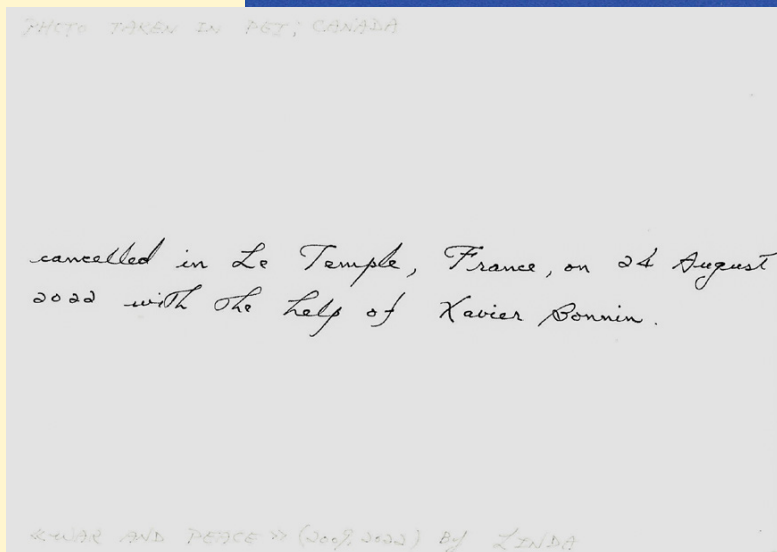 PHOTO TAKEN IN PEI, CANADA
cancelled in Le Temple, France, on 24 August
2022 with the help of Xavier Bonnin.
«WAR AND PEACE» (2009, 2022) By LINDA